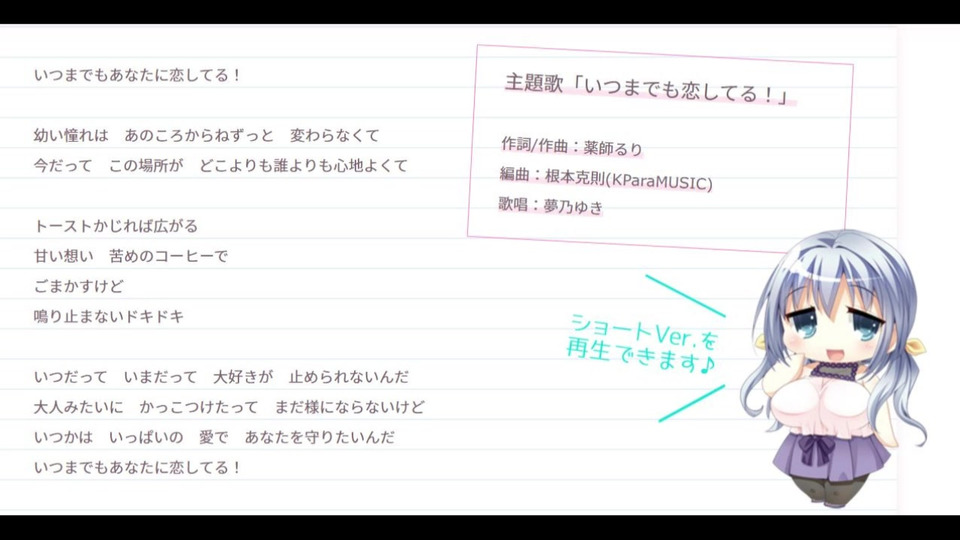 いつまでもあなたに恋してる！
幼い憧れは　あのころからねずっと　変わらなくて
今だって　この場所が　どこよりも誰よりも心地よくて
トーストかじれば広がる
甘い想い　苦めのコーヒーで
ごまかすけど
鳴り止まないドキドキ
いつだって　いまだって　大好きが　止められないんだ
大人みたいに　かっこつけたって　まだ様にならないけど
いつかは　いっぱいの　愛で　あなたを守りたいんだ
いつまでもあなたに恋してる！
主題歌「いつまでも恋してる！」
作詞/作曲：薬師るり
編曲：根本克則(KParaMUSIC)
歌唱：夢乃ゆき
ショートVer.を
再生できます♪